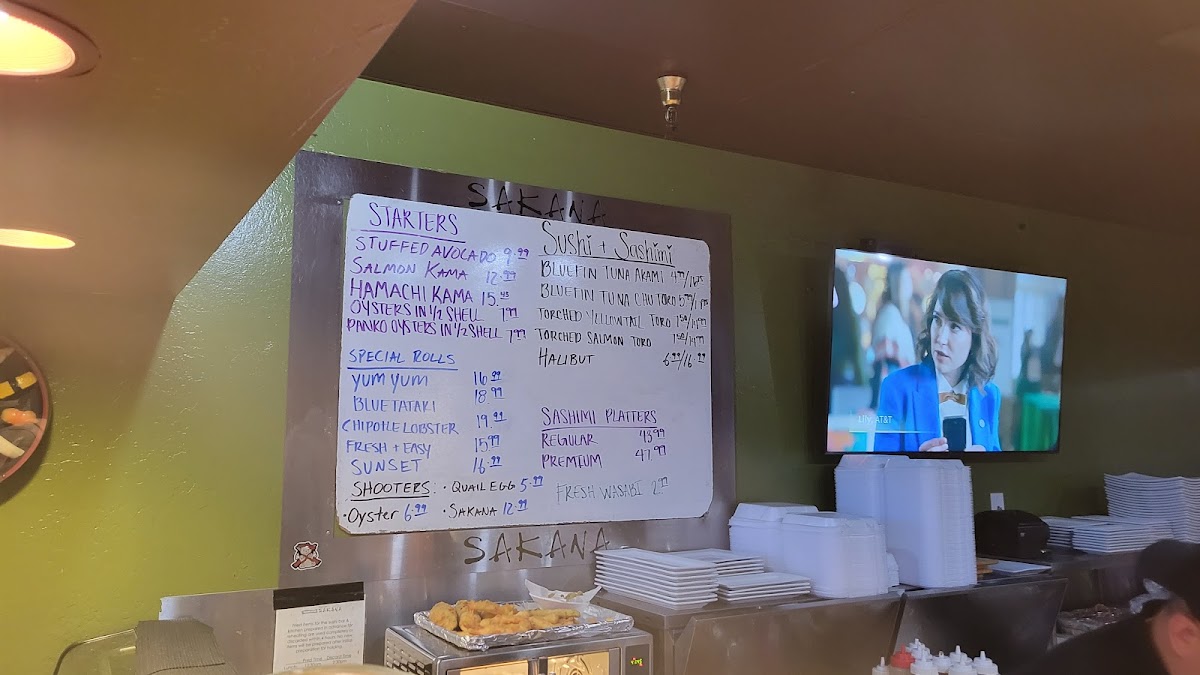 SAKANA
STARTERS
STUFFED AVOCADO 9.99
SALMON KAMA 12.99
HAMACHI KAMA 15.
OYSTERS IN 1/2 SHELL 7.99
PANKO OYSTERS IN 1/2 SHELL 7.99
SPECIAL ROLLS
YUM YUM 16.99
BLUE TATAKI 18.99
CHIPOTLE LOBSTER 19.99
FRESH + EASY 15.99
SUNSET 16.99
SHOOTERS: • QUAIL EGG 5.99
• Oyster 6.99 • SAKANA 12.99
Sushi + Sashimi
BLUEFIN TUNA AKAMI
BLUEFIN TUNA CHU TORO
TORCHED YELLOWTAIL TORO
TORCHED SALMON TORO
HALIBUT 6.99/16.99
SASHIMI PLATTERS
REGULAR 43.99
PREMIUM 47.99
FRESH WASABI 2.99
SAKANA
Lily, AT&T